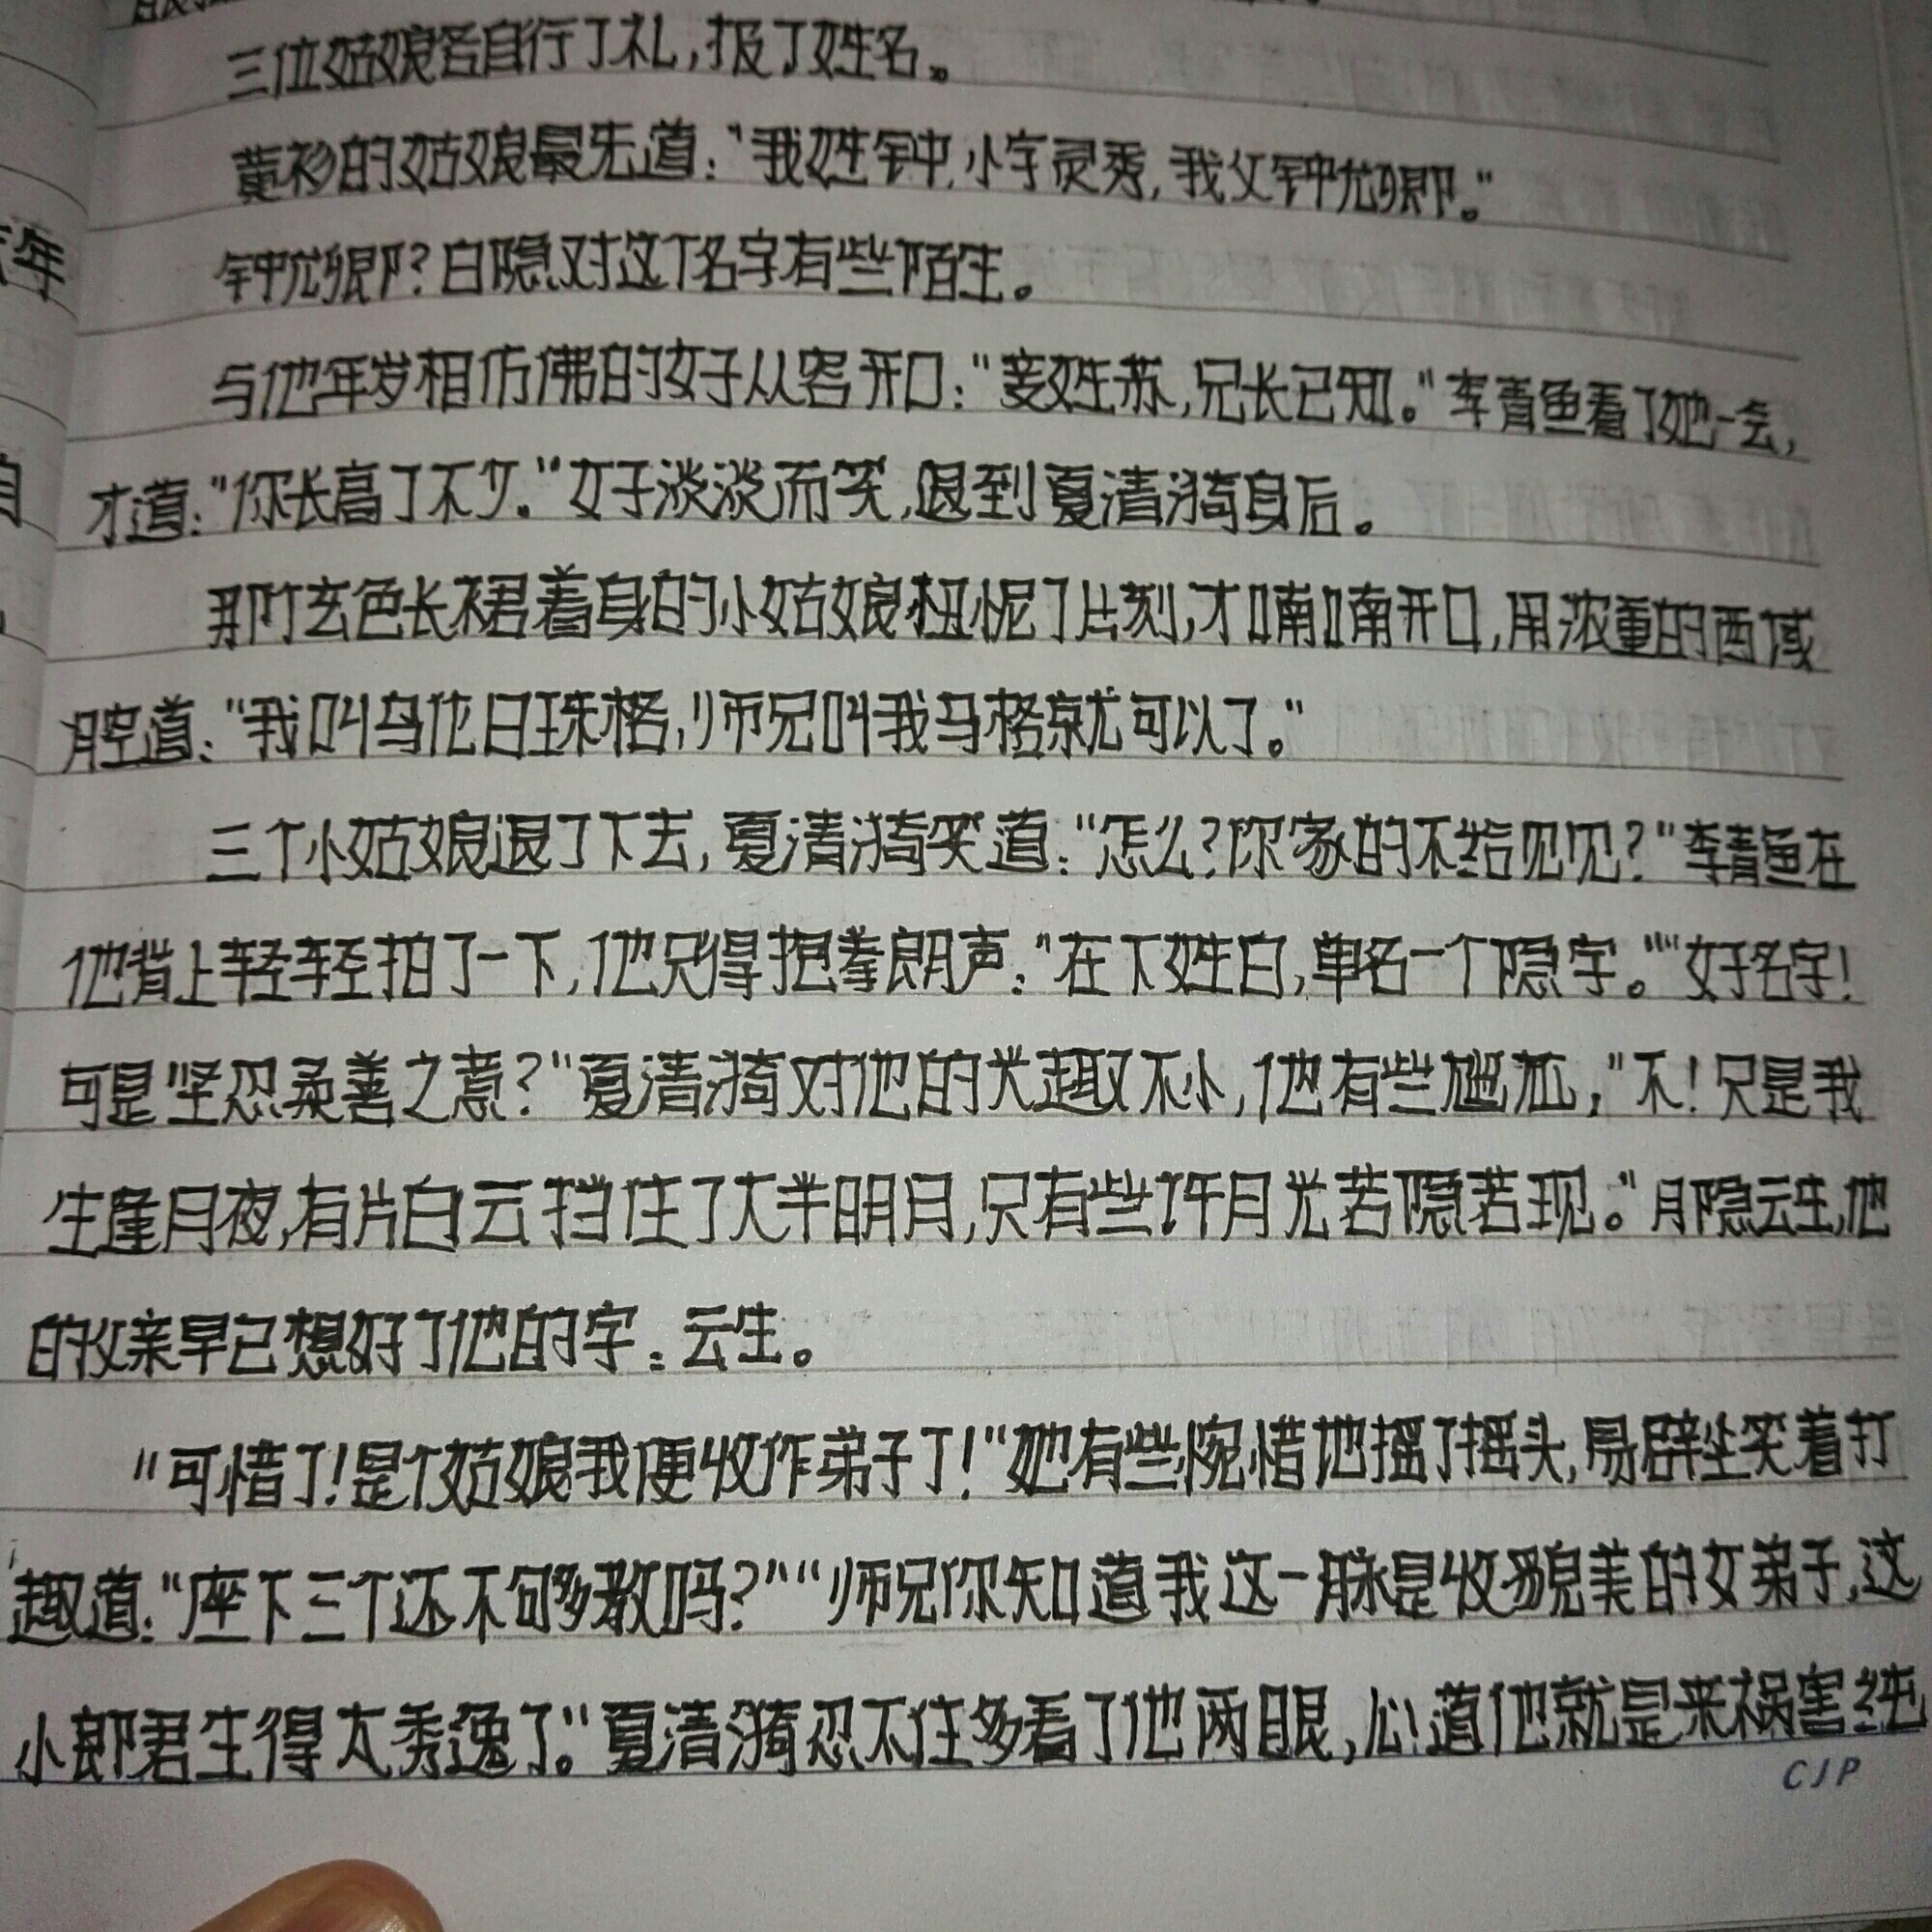 三位姑娘各自行了礼,报了姓名。
黄衫的姑娘最先道:“我姓钟,小字灵秀,我父钟尤卿。”
钟尤卿?白隐对这个名字有些陌生。
年
与他年岁相仿佛的女子从容开口:“妾姓苏,兄长已知。”李青鱼看了她一会,
才道:“你长高了不少。”女子淡淡而笑,退到夏清漪身后。
那个玄色长裙着身的小姑娘扭怩了片刻,才喃喃开口,用浓重的西域
腔道:“我叫乌伦日珠格,师兄叫我马格就可以了。”
三个小姑娘退了下去,夏清漪笑道:“怎么?你家的不给见见?”李青鱼在
他背上轻轻拍了一下,他只得抱拳朗声:“在下姓白,单名一个隐字。”“好名字!
可是坚忍柔善之意?”夏清漪对他的兴趣不小,他有些尴尬,“不!只是我
生逢月夜,有片白云挡住了大半明月,只有些许月光若隐若现。”月隐云生,他
的父亲早已想好了他的字:云生。
“可惜了!是个姑娘我便收作弟子了!”她有些惋惜地摇了摇头,易辟尘笑着打
趣道:“座下三个还不够教吗?”“师兄你知道我这一脉是收貌美的女弟子,这
小郎君生得太秀逸了。”夏清漪忍不住多看了他两眼,心道他就是来祸害纯
CJP